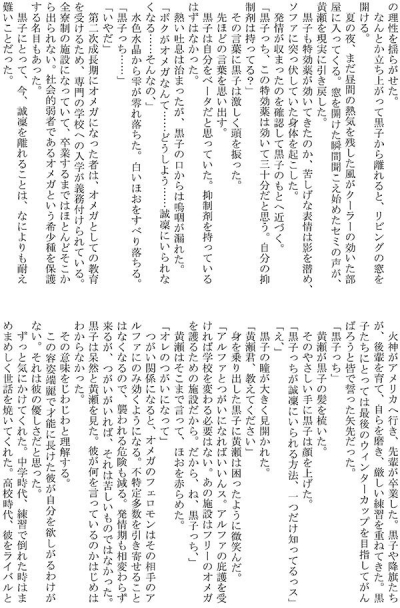 の理性を揺らせた。
　なんとか立ち上がって黒子から離れると、リビングの窓を
開ける。
　夏の夜、まだ昼間の熱気を残した風がクーラーの効いた部
屋に入ってくる。窓を開けた瞬間聞こえ始めたセミの声が、
黄瀬を現実に引き戻した。
　黒子も特効薬が効いてきたのか、苦しげな表情は影を潜め、
ソファに突っ伏していた身体を起こした。
　発情が収まったのを確認して黒子のもとへ近づく。
「黒子っち、この特効薬は効いて三十分だと思う。自分の抑
制剤は持ってる？」
　その言葉に黒子は激しく頭を振った。
　先ほどの言葉を思い出す。
　黒子は自分をベータだと思っていた。抑制剤を持っている
はずはなかった。
　熱い吐息は治まったが、黒子の口からは嗚咽が漏れた。
「ボクがオメガなんて……どうしよう……誠凛にいられな
くなる……そんなの、」
　水色水晶から雫が零れ落ちた。白いほおをすべり落ちる。
「黒子っち……」
「いやだ」
　第二次成長期にオメガになった者は、オメガとしての教育
を受けるため、専門の学校への入学が義務付けられている。
全寮制の施設になっていて、卒業するまではほとんどそこか
ら出られない。社会的弱者であるオメガという希少種を保護
する名目もあった。
　黒子にとって、今、誠凛を離れることは、なによりも耐え
難いことだった。
　火神がアメリカへ行き、先輩が卒業した。黒子や降旗たち
が、後輩を育て、自らを磨き、厳しい練習を重ねてきた。黒
子たちにとっては最後のウィンターカップを目指してがん
ばろうと皆で誓った矢先だった。
「黒子っち」
　黄瀬が黒子の髪を梳いた。
　そのやさしい手に黒子は顔を上げた。
「黒子っちが誠凛にいられる方法、一つだけ知ってるっス」
「え、」
　黒子の瞳が大きく見開かれた。
「黄瀬君、教えてください」
　身を乗り出した黒子に黄瀬は困ったように微笑んだ。
「アルファとつがいになればいいんス。アルファの庇護を受
ければ学校を変わる必要はない。あの施設はフリーのオメガ
を護るための施設だから。だから、ね、黒子っち、」
　黄瀬はそこまで言って、ほおを赤らめた。
「オレのつがいになって」
　つがい関係になると、オメガのフェロモンはその相手のア
ルファにのみ効くようになる。不特定多数を引き寄せること
はなくなるので、襲われる危険も減る。発情期も相変わらず
来るが、つがいがいれば、それは苦しいものではなかった。
　黒子は呆然と黄瀬を見た。彼が何を言っているのかはじめは
わからなかった。
　その意味をじわじわと理解する。
　この容姿端麗で才能に長けた彼が自分を欲しがるわけが
ない。それは彼の優しさだと思った。
　ずっと気にかけてくれた。中学時代、練習で倒れた時はま
めまめしく世話を焼いてくれた。高校時代、彼をライバルと